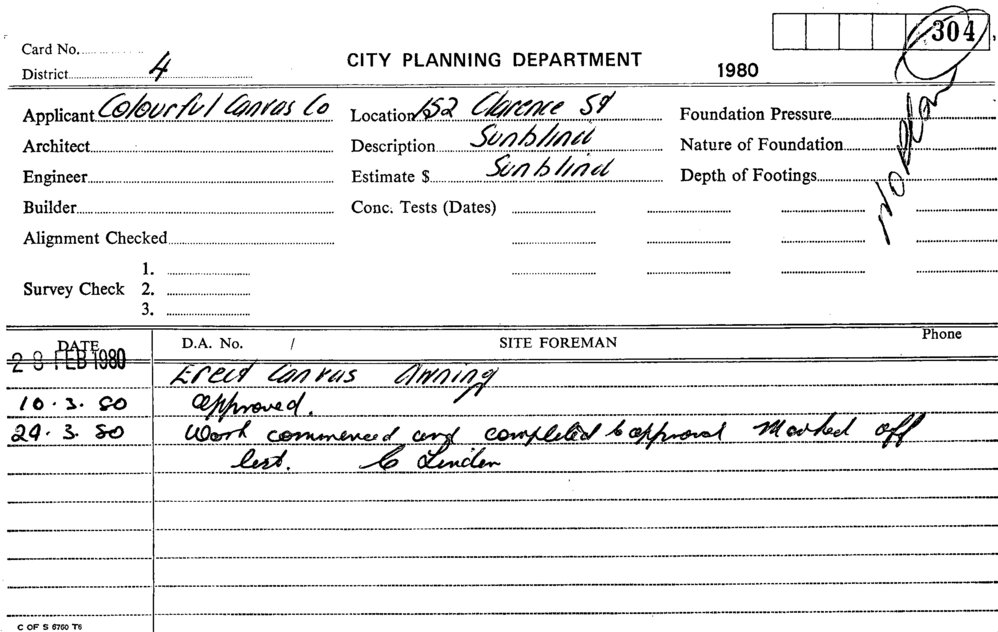 304
Card No.
District 4
CITY PLANNING DEPARTMENT
1980
Applicant Colourful Canvas Co
Location 152 Clarence St
Foundation Pressure
Architect
Description Sunblind
Nature of Foundation
Engineer
Estimate $ Sunblind
Depth of Footings
No Plan
Builder
Conc. Tests (Dates)
Alignment Checked
1.
Survey Check 2.
3.
DATE
D.A. No. /
SITE FOREMAN
Phone
28 FEB 1980
Erect Canvas Awning
10.3.80 Approved.
29.3.80 Work commenced and completed to approval Marked off
list. C Linden
C OF S 6760 T6